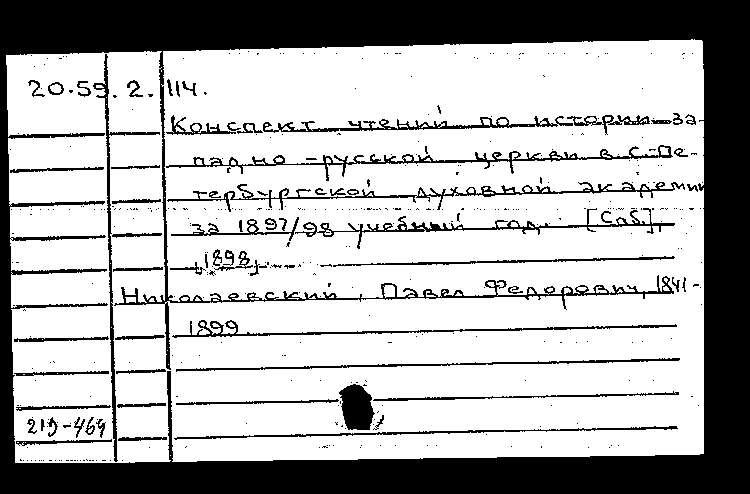 20.59.2.114.
Конспект чтений по истории за-
падно-русской церкви в С.-Пе-
тербургской духовной академии
за 1897/98 учебный год. [Спб.],
[1898].
Николаевский, Павел Федорович, 1841-
1899.
219-469